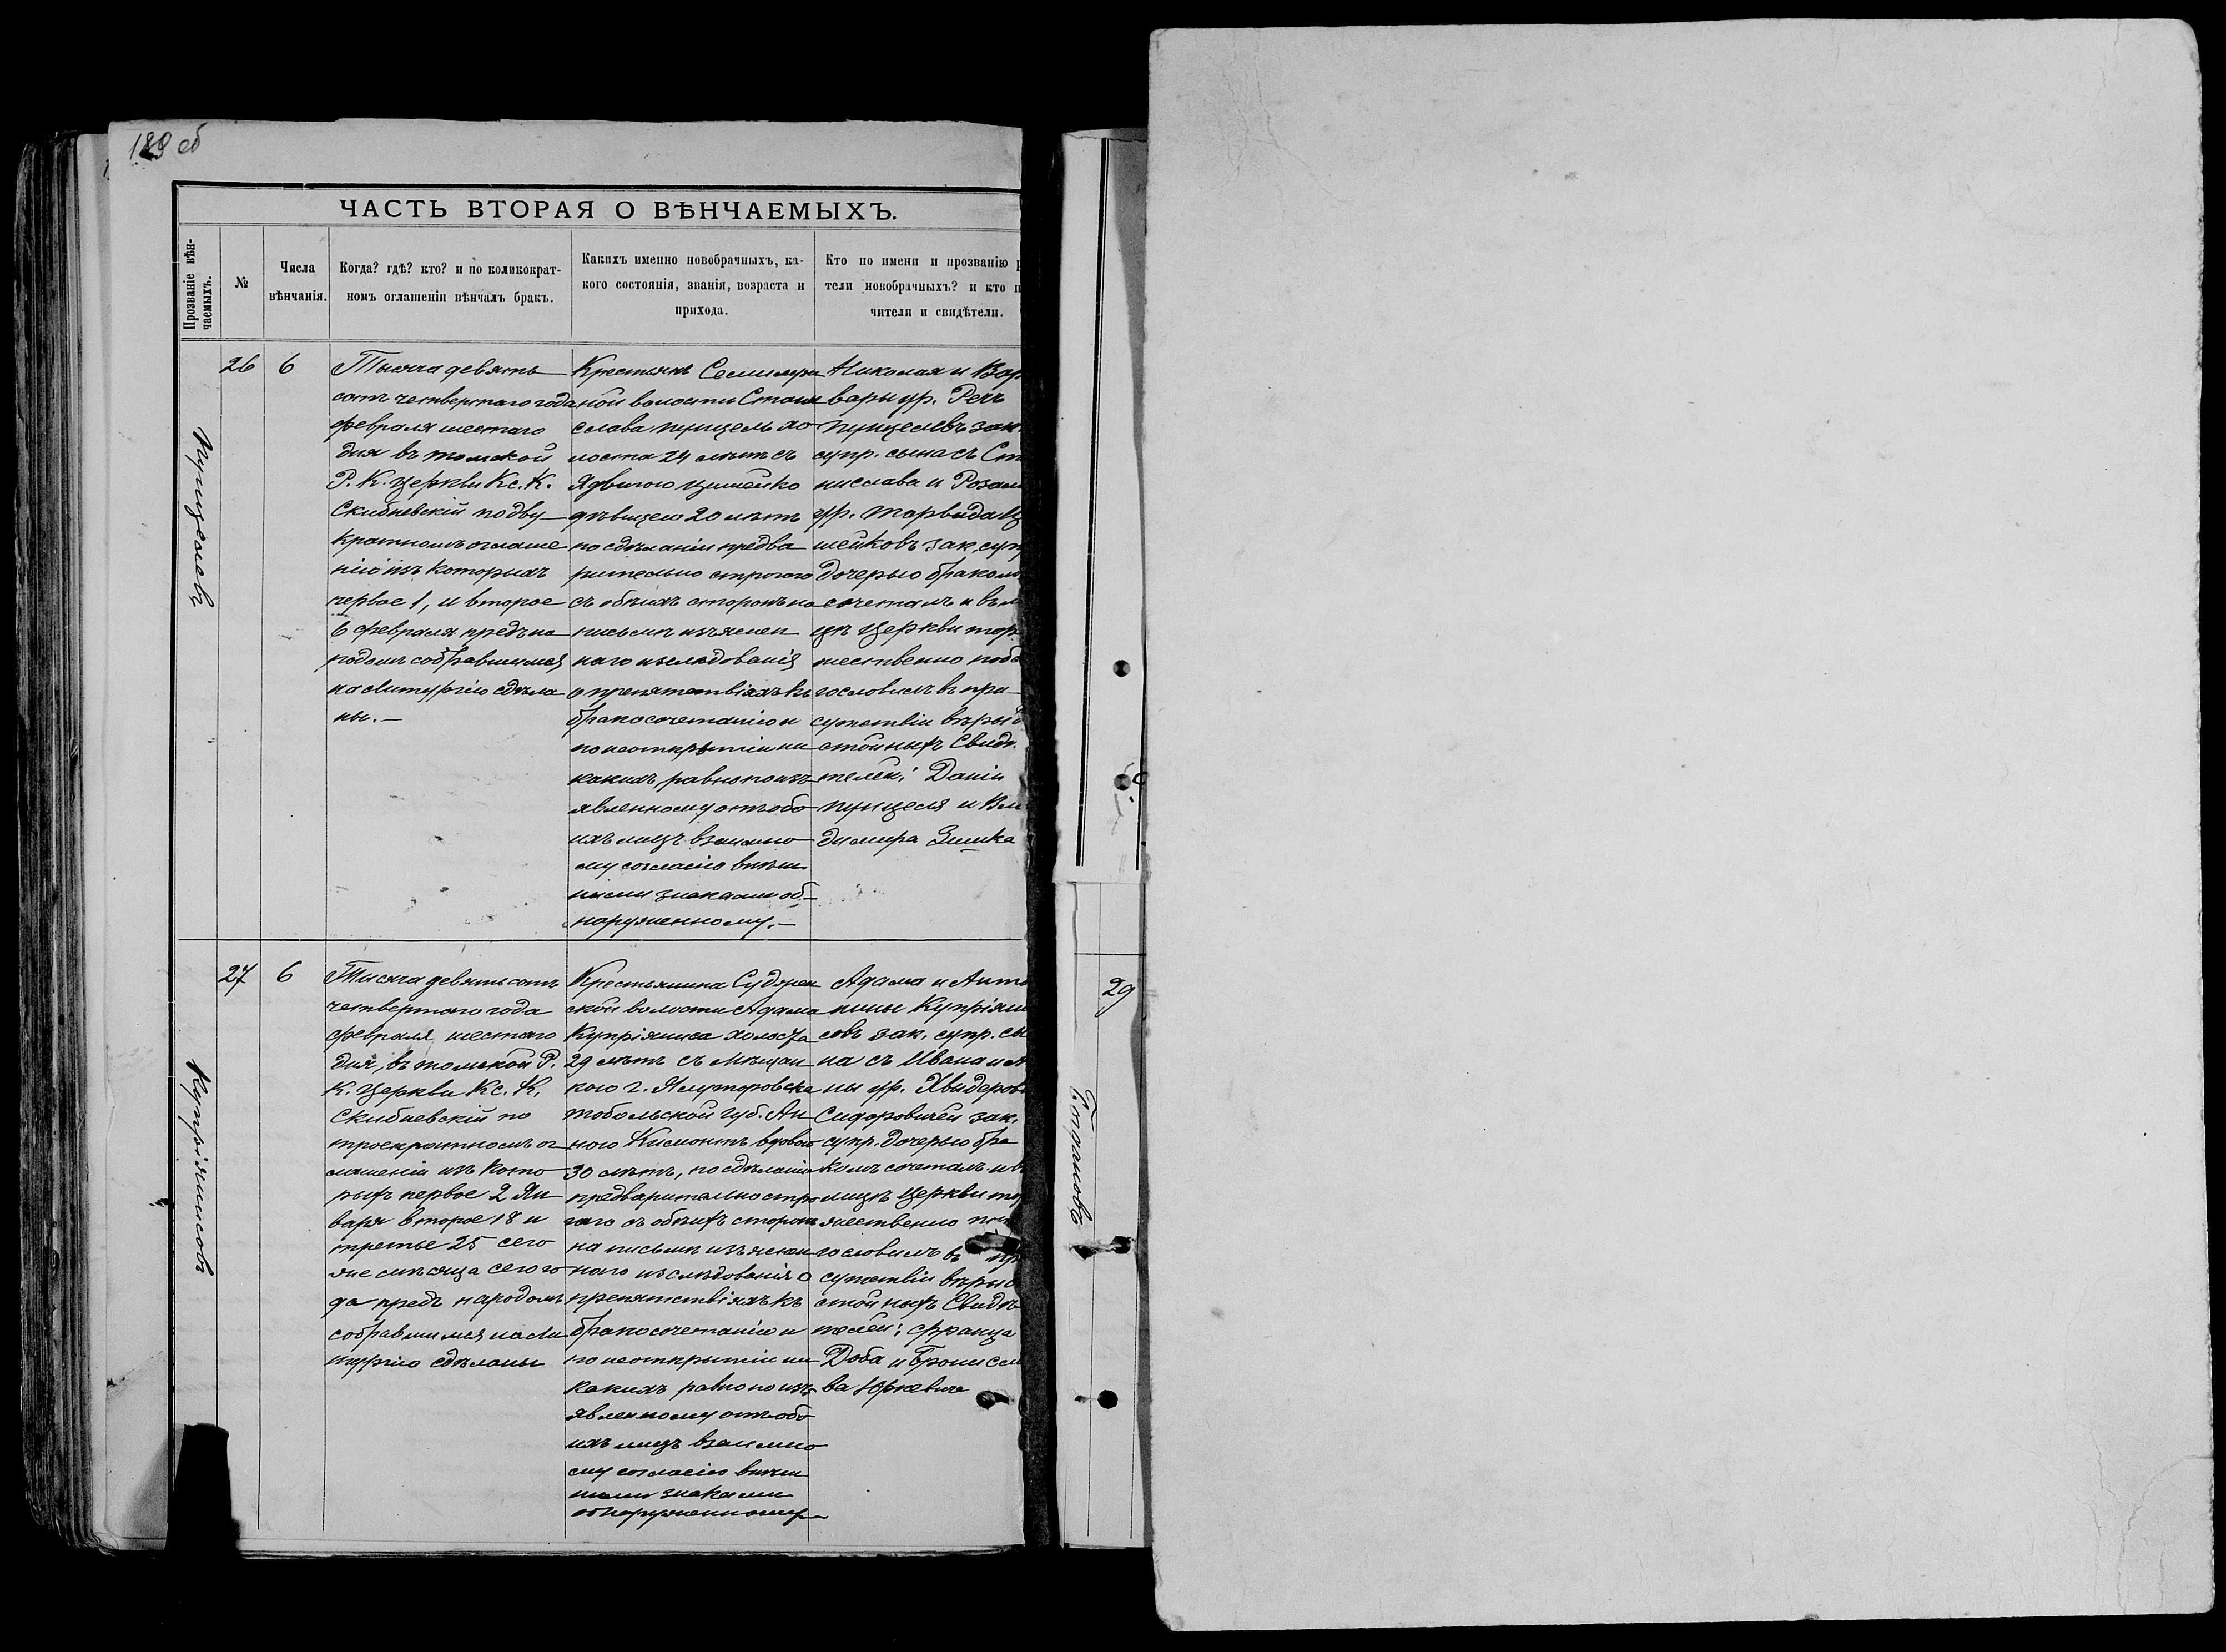 189 об
ЧАСТЬ ВТОРАЯ О ВѢНЧАЕМЫХЪ.
Прозваніе вѣн-
чаемыхъ.
№
Числа
вѣнчанія.
Когда? гдѣ? кто? и по коликократ-
номъ оглашеніи вѣнчалъ бракъ.
Какихъ именно новобрачныхъ, ка-
кого состоянія, званія, возраста и
прихода.
Кто по имени и прозванію р
тели новобрачныхъ? и кто п
чители и свидѣтели.
26
6
Тысяча девять
сотъ четвертаго года
февраля шестаго
дня въ томской
Р. К. церкви Кс. К.
Скибневскій по дву
кратномъ оглаше
ніи изъ которыхъ
первое 1, и второе
6 февраля предъ на
родомъ собравшимся
на литургію сдѣла
ны. —
Крестьян Семилуж
ной волости Стани
слава Пунцель хо
лоста 24 лѣтъ съ
Ядвигою
дѣвицею 20 лѣтъ
по сдѣланіи предва
рительно строгаго
съ обѣихъ сторонъ на
письмѣ изъяснен
наго изслѣдованія
о препятствіяхъ къ
бракосочетанію и
по неоткрытіи ни
какихъ, равно по изъ
явленному отъ обо
ихъ лицъ взаимно
му согласію внѣш
ними знаками об-
наруженному. —
Николая и Вар
вары ур. Рехъ
Пунцелевъ зак.
супр. сына съ Ста
нислава и Розал
ур. Тарвида
шейковъ зак. суп
дочерью браком
сочеталъ и въ л
цѣ церкви тор
жественно побл
гословилъ въ при-
сутствіи вѣры д
стойныхъ Свидѣ
телей: Даніи
Пунцеля и Вла
димира Зинка
27
6
Купріянисовъ
Тысяча девятьсотъ
четвертаго года
февраля шестаго
дня, въ томской Р.
К. Церкви Кс. К.
Скибневскій по
троекратномъ ог
лашеніи изъ кото
рыхъ первое 2 Ян
варя второе 18 и
третье 25 сего
же мѣсяца сего го
да предъ народомъ
собравшимся на ли
тургію сдѣланы
Крестьянина Суджен
ской волости Адама
Купріяниса холоста
29 лѣтъ съ Мѣщан
кою г. Ялуторовска
Тобольской губ. Ан
ною вдовою
30 лѣтъ, по сдѣланіи
предварительно стро
гаго съ обѣихъ сторонъ
на письмѣ изъяснен
наго изслѣдованія о
препятствіяхъ къ
бракосочетанію и
по неоткрытіи ни
какихъ равно по изъ
явленному отъ обо
ихъ лицъ взаимно
му согласію внѣш
ними знаками
обнаруженному
Адама и Анто
нины Купріяни
совъ зак. супр. сы
на съ Ивана и А
ны ур. Хвидеров
Сидоровичей зак.
супр. дочерью бра
комъ сочеталъ и в
лицѣ Церкви тор
жественно по
гословилъ въ пр
сутствіи вѣры д
стойныхъ Свидѣ
телей: Франца
Доба и Бронисла
ва Юркевича
29
Богдановъ